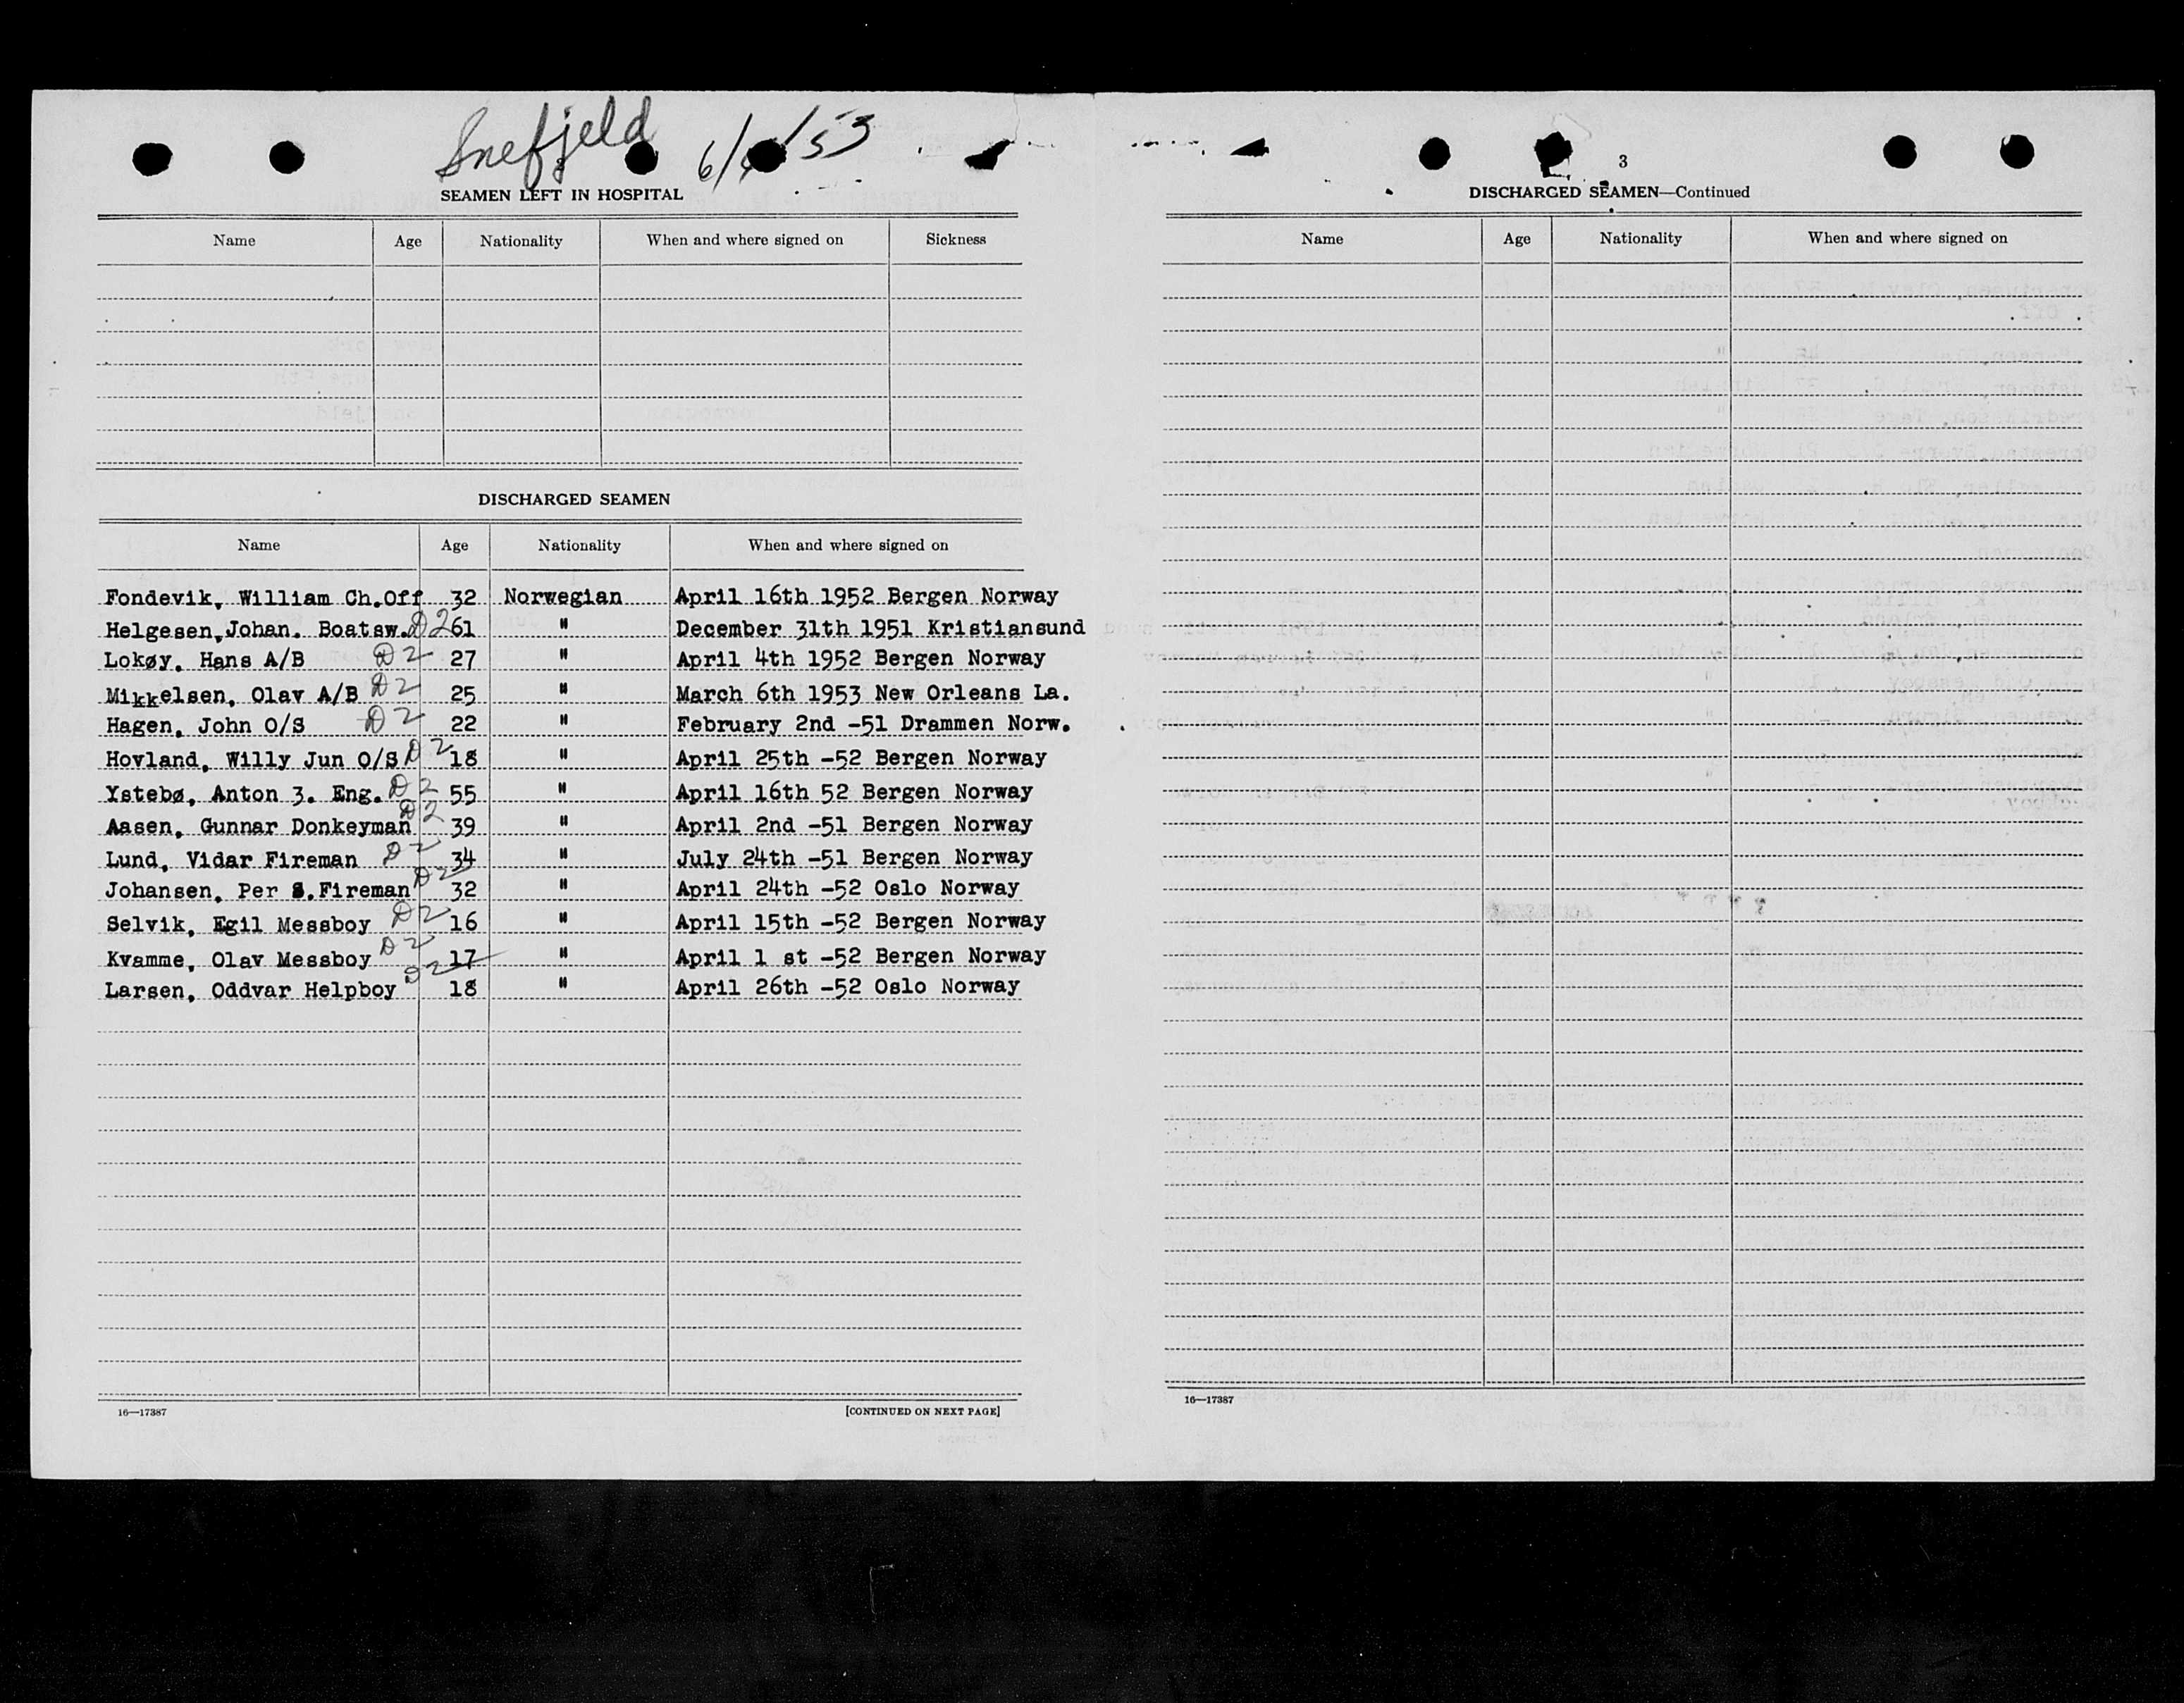 Snefjeld 6/ /53
SEAMEN LEFT IN HOSPITAL
Name Age Nationality When and where signed on Sickness
DISCHARGED SEAMEN
Name Age Nationality When and where signed on
Fondevik, William Ch.Off 32 Norwegian April 16th 1952 Bergen Norway
Helgesen,Johan. Boatsw. D2 61 " December 31th 1951 Kristiansund
Lokøy, Hans A/B D2 27 " April 4th 1952 Bergen Norway
Mikkelsen, Olav A/B D2 25 " March 6th 1953 New Orleans La.
Hagen, John O/S D2 22 " February 2nd -51 Drammen Norw.
Hovland, Willy Jun O/S D2 18 " April 25th -52 Bergen Norway
Ystebø, Anton 3. Eng. D2 55 " April 16th 52 Bergen Norway
Aasen, Gunnar Donkeyman D2 39 " April 2nd -51 Bergen Norway
Lund, Vidar Fireman D2 34 " July 24th -51 Bergen Norway
Johansen, Per S.Fireman D2 32 " April 24th -52 Oslo Norway
Selvik, Egil Messboy D2 16 " April 15th -52 Bergen Norway
Kvamme, Olav Messboy D2 17 " April 1 st -52 Bergen Norway
Larsen, Oddvar Helpboy D2 18 " April 26th -52 Oslo Norway
16—17387 [CONTINUED ON NEXT PAGE]
3
DISCHARGED SEAMEN—Continued
Name Age Nationality When and where signed on
16—17387